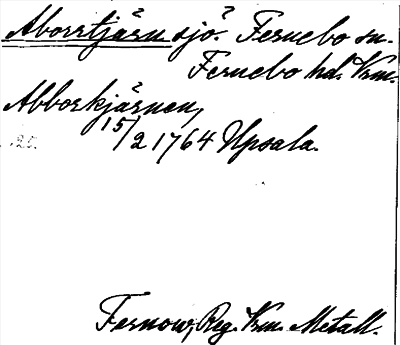 Aborrtjärn sjö? Fernebo sn.
Fernebo hd. Vrm.
Abborkjärnen,
15/2 1764 Upsala.
Fernow, Reg. Vrm. Metall.